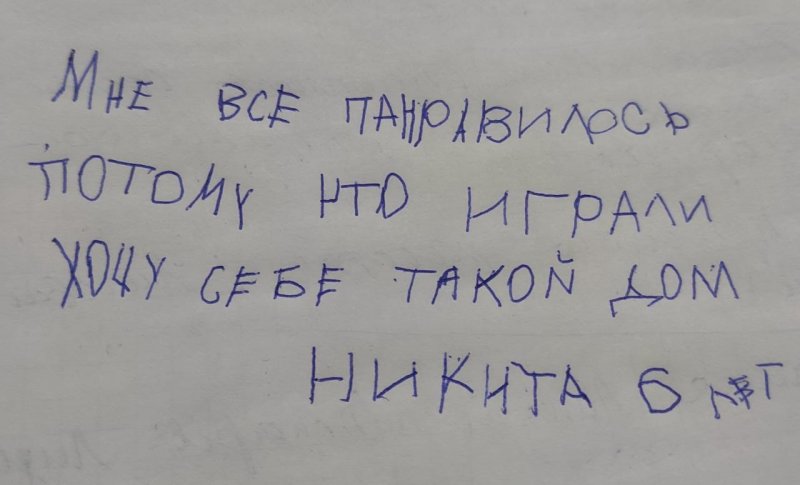 Мне все панравилось
потому что играли
хочу себе такой дом
Никита 6 лет